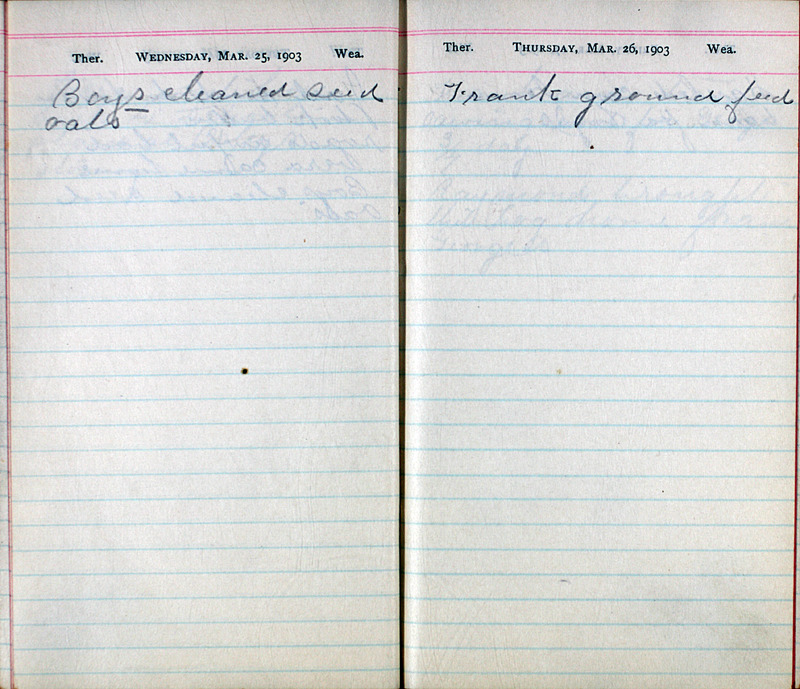 Ther. WEDNESDAY, MAR. 25, 1903 Wea.
Boys cleaned seed
oats
Ther. THURSDAY, MAR. 26, 1903 Wea.
Frank ground feed